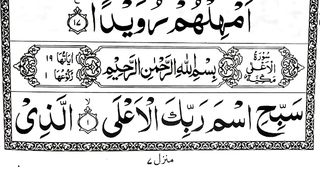 اَمْهِلْهُمْ رُوَيْدًا ۝١٧
سُوْرَةُ الْاَعْلٰى مَكِّيَّةٌ بِسْمِ اللّٰهِ الرَّحْمٰنِ الرَّحِيْمِ اٰيَاتُهَا ١٩ رُكُوْعُهَا ١
سَبِّحِ اسْمَ رَبِّكَ الْاَعْلَى ۝١ الَّذِيْ
منزل ٧